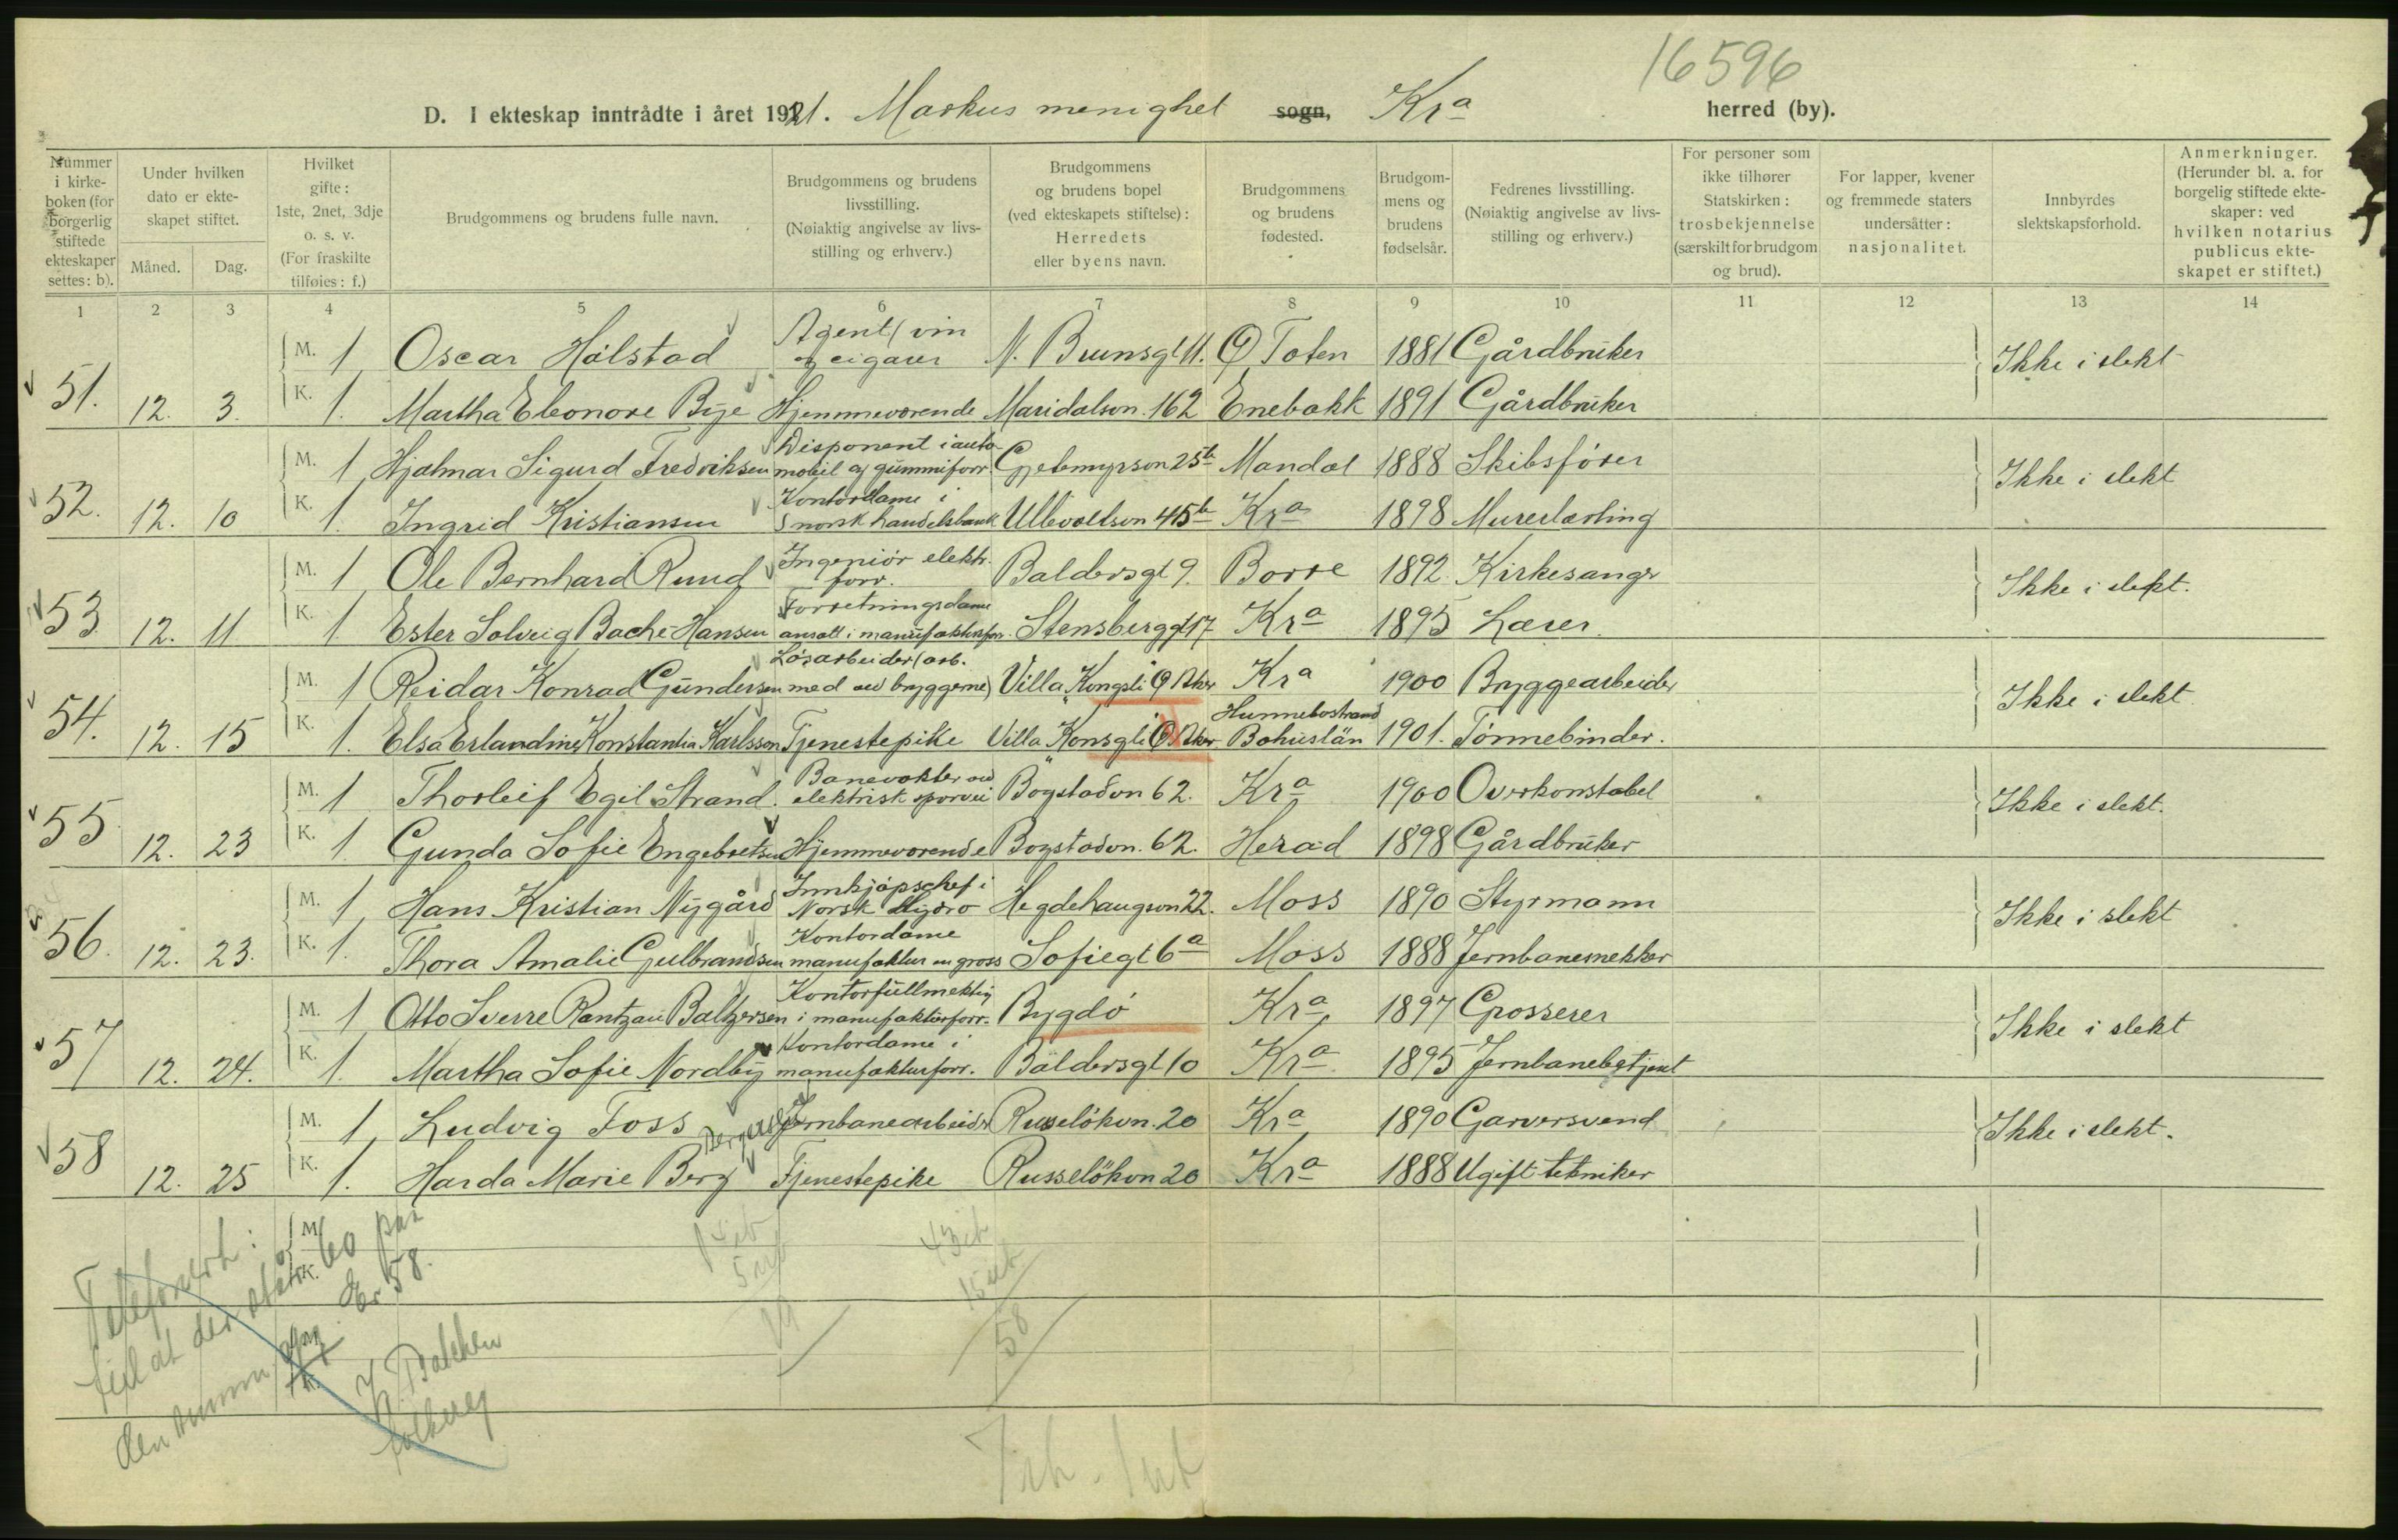 16596
D. I ekteskap inntrådte i året 1921. Markus menighet sogn, Kra herred (by).
Nummer i kirke-boken (for borgerlig stiftede ekteskaper settes: b).
Under hvilken dato er ekte-skapet stiftet.
Måned. Dag.
Hvilket gifte: 1ste, 2net, 3dje o. s. v. (For fraskilte tilføies: f.)
Brudgommens og brudens fulle navn.
Brudgommens og brudens livsstilling. (Nøiaktig angivelse av livs-stilling og erhverv.)
Brudgommens og brudens bopel (ved ekteskapets stiftelse): Herredets eller byens navn.
Brudgommens og brudens fødested.
Brudgom-mens og brudens fødselsår.
Fedrenes livsstilling. (Nøiaktig angivelse av livs-stilling og erhverv.)
For personer som ikke tilhører Statskirken: trosbekjennelse (særskilt for brudgom og brud).
For lapper, kvener og fremmede staters undersåtter: nasjonalitet.
Innbyrdes slektskapsforhold.
Anmerkninger. (Herunder bl. a. for borgelig stiftede ekte-skaper: ved hvilken notarius publicus ekte-skapet er stiftet.)
1 2 3 4 5 6 7 8 9 10 11 12 13 14
M. 1 Oscar Hålstad Agent (vin og cigarer N. Bruunsgt 11. Ø Toten 1881 Gårdbruker Ikke i slekt
51. 12. 3. K. 1. Martha Eleonore Bye Hjemmeværende Maridalsvn. 162 Enebakk 1891 Gårdbruker
M. 1 Hjalmar Sigurd Fredriksen Disponent i auto-mobil og gummiforr. Gjetemyrsvn 25b Mandal 1888 Skibsfører Ikke i slekt
52. 12. 10 K. 1. Ingrid Kristiansen Kontordame i norsk handelsbank Ullevoldsvn 45b Kra 1898 Murerlærling
M. 1 Ole Bernhard Ruud Ingeniør elektr. forr. Baldersgt 9. Borre 1892. Kirkesanger Ikke i slekt.
53 12. 11 K. 1 Ester Solveig Bache-Hansen Forretningsdame ansatt i manufakturforr. Stensberggt 17 Kra 1895 Lærer
M. 1 Reidar Konrad Gundersen Løsarbeider (arb. med ved bryggerne) Villa "Kongsli" Ø Aker Kra 1900 Bryggearbeider Ikke i slekt
54. 12. 15 K. 1. Elsa Erlandine Konstantia Karlsson Tjenestepike Villa "Konsgli" Ø Aker Hunnebostrand Bohuslän 1901. Tønnebinder.
M. 1 Thorleif Egil Strand. Banevokter ved elektrisk sporvei Bogstadvn 62. Kra 1900 Overkonstabel Ikke i slekt.
55 12. 23 K. 1 Gunda Sofie Engebretsen Hjemmeværende Bogstadvn. 62. Herad 1898 Gårdbruker
M. 1 Hans Kristian Nygård Innkjøpschef i Norsk Hydro Hegdehaugsvn 22. Moss 1890 Styrmann Ikke i slekt
56. 12. 23. K. 1. Thora Amalie Gulbrandsen Kontordame manufaktur en gross Sofiegt 6a Moss 1888 Jernbanesnekker
M. 1 Otto Sverre Rantzau Baltzersen Kontorfullmektig i manufakturforr. Bygdø Kra 1897 Grosserer Ikke i slekt
57 12. 24. K. 1. Martha Sofie Nordby Kontordame i manufakturforr. Baldersgt 10 Kra 1895 Jernbanebetjent
M. 1 Ludvig Foss Jernbanearbeider Russeløkvn. 20 Kra 1890 Garversvend Ikke i slekt.
58 12. 25 K. 1. Harda Marie Berg Tjenestepike Russeløkvn 20 Kra 1888 Ugift tekniker
M. K.
Telefonert:
feil at der står 60 par
den summen Er 58.
58